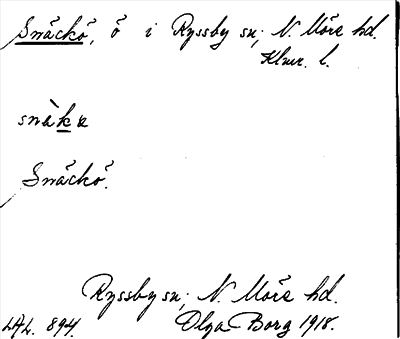 Snäckö, ö i Ryssby sn; N. Möre hd.
Klmr. l.
snàkɐ
Snäckö.
Ryssby sn; N. Möre hd.
LAL. 894. Olga Borg 1918.